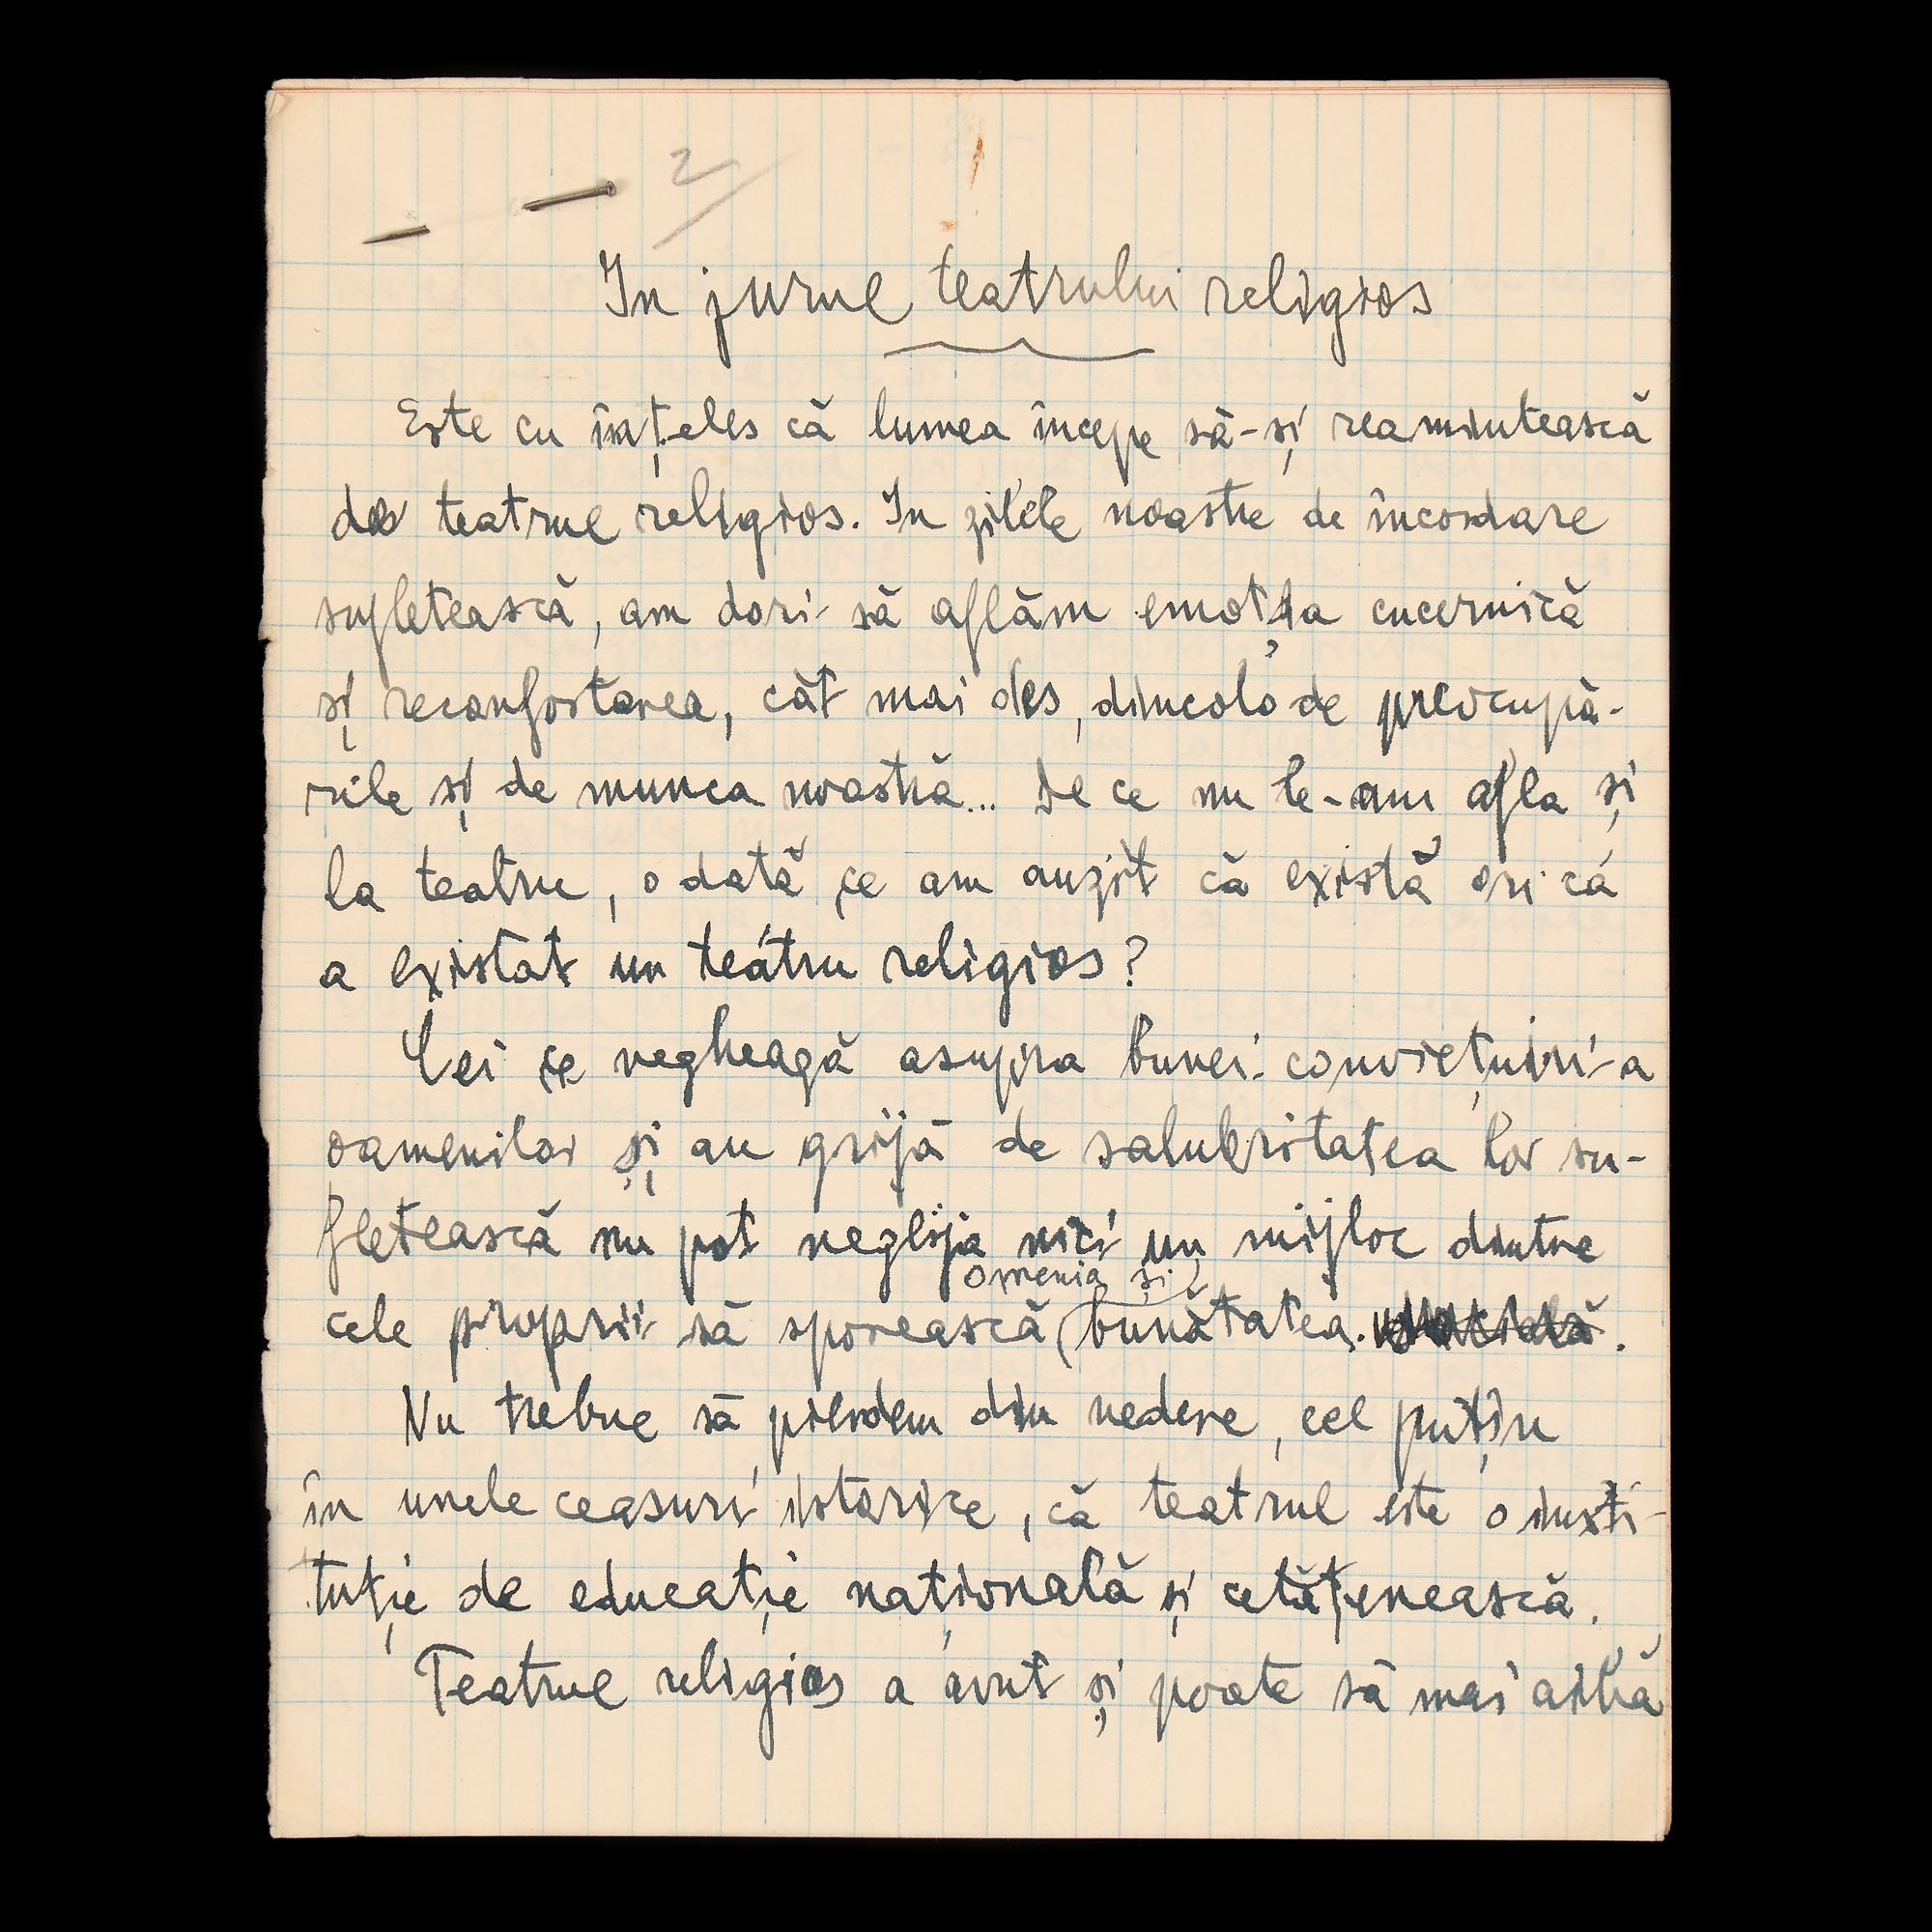 2
In jurul teatrului religios
Este cu înțeles că lumea începe să-și reamintească
de teatrul religios. In zilele noastre de încordare
sufletească, am dori să aflăm emoția cucernică
și reconfortarea, cât mai des, dincolo de preocupă-
rile și de munca noastră... De ce nu le-am afla și
la teatru, o dată ce am auzit că există ori că
a existat un teatru religios?
Cei ce veghează asupra bunei conviețuiri a
oamenilor și au grijă de salubritatea lor su-
fletească nu pot neglija nici un mijloc dintre
omenia și
cele proprii să sporească bunătatea.
Nu trebue să pierdem din vedere, cel puțin
în unele ceasuri istorice, că teatrul este o insti-
tuție de educație națională și cetățenească.
Teatrul religios a avut și poate să mai aibă